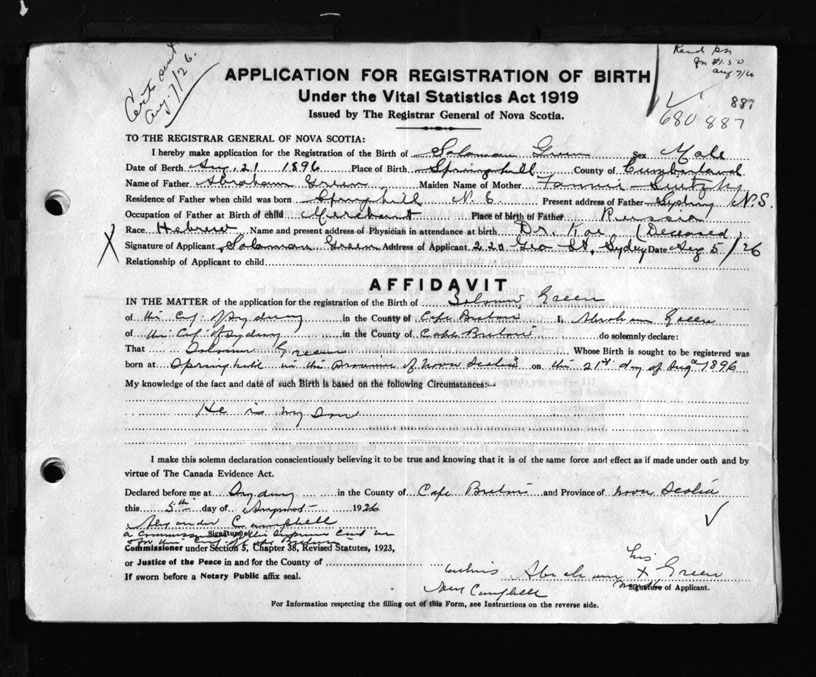 Cert sent
Aug. 7/26.
Aug 7/26
APPLICATION FOR REGISTRATION OF BIRTH
Under the Vital Statistics Act 1919
Issued by The Registrar General of Nova Scotia.
887
680887
TO THE REGISTRAR GENERAL OF NOVA SCOTIA:
I hereby make application for the Registration of the Birth of Soloman Green Sex Male
Date of Berth Aug. 21 1896 Place of Birth Springhill County of Cumberland
Name of Father Abraham Green Maiden Name of Mother Fannie
Residence of Father when child was born Springhill N. S Present address of Father Sydney N.S.
Occupation of Father at Birth of child Merchant Place of birth of Father Russia
Race Hebrew Name and present address of Physician in attendance at birth Dr. (Deceased)
X Signature of Applicant Soloman Green Address of Applicant 220 Geo St. Sydney Date Aug 5/26
Relationship of Applicant to child
AFFIDAVIT
IN THE MATTER of the application for the registration of the Birth of Soloman Green
of the City of Sydney in the County of Cape Breton I, Abraham Green
of the City of Sydney in the County of Cape Breton do solemnly declare:
That Soloman Green Whose Birth is sought to be registered was
born at Springhill in the Province of Nova Scotia on the 21st day of Augt 1896
My knowledge of the fact and date of such Birth is based on the following Circumstances:-
He is my son
I make this solemn declaration conscientiously believing it to be true and knowing that it is of the same force and effect as if made under oath and by
virtue of The Canada Evidence Act.
Declared before me at Sydney in the County of Cape Breton and Province of Nova Scotia
this 5th day of August 1926
Alexander Campbell
a Commissioner of the Supreme Court in
for the County of Cape Breton
Commissioner under Section 5, Chapter 38, Revised Statutes, 1923,
or Justice of the Peace in and for the County of
If sworn before a Notary Public affix seal.
his
witness Abraham X Green
mark
Campbell Signature of Applicant.
For Information respecting the filling out of this Form, see Instructions on the reverse side.